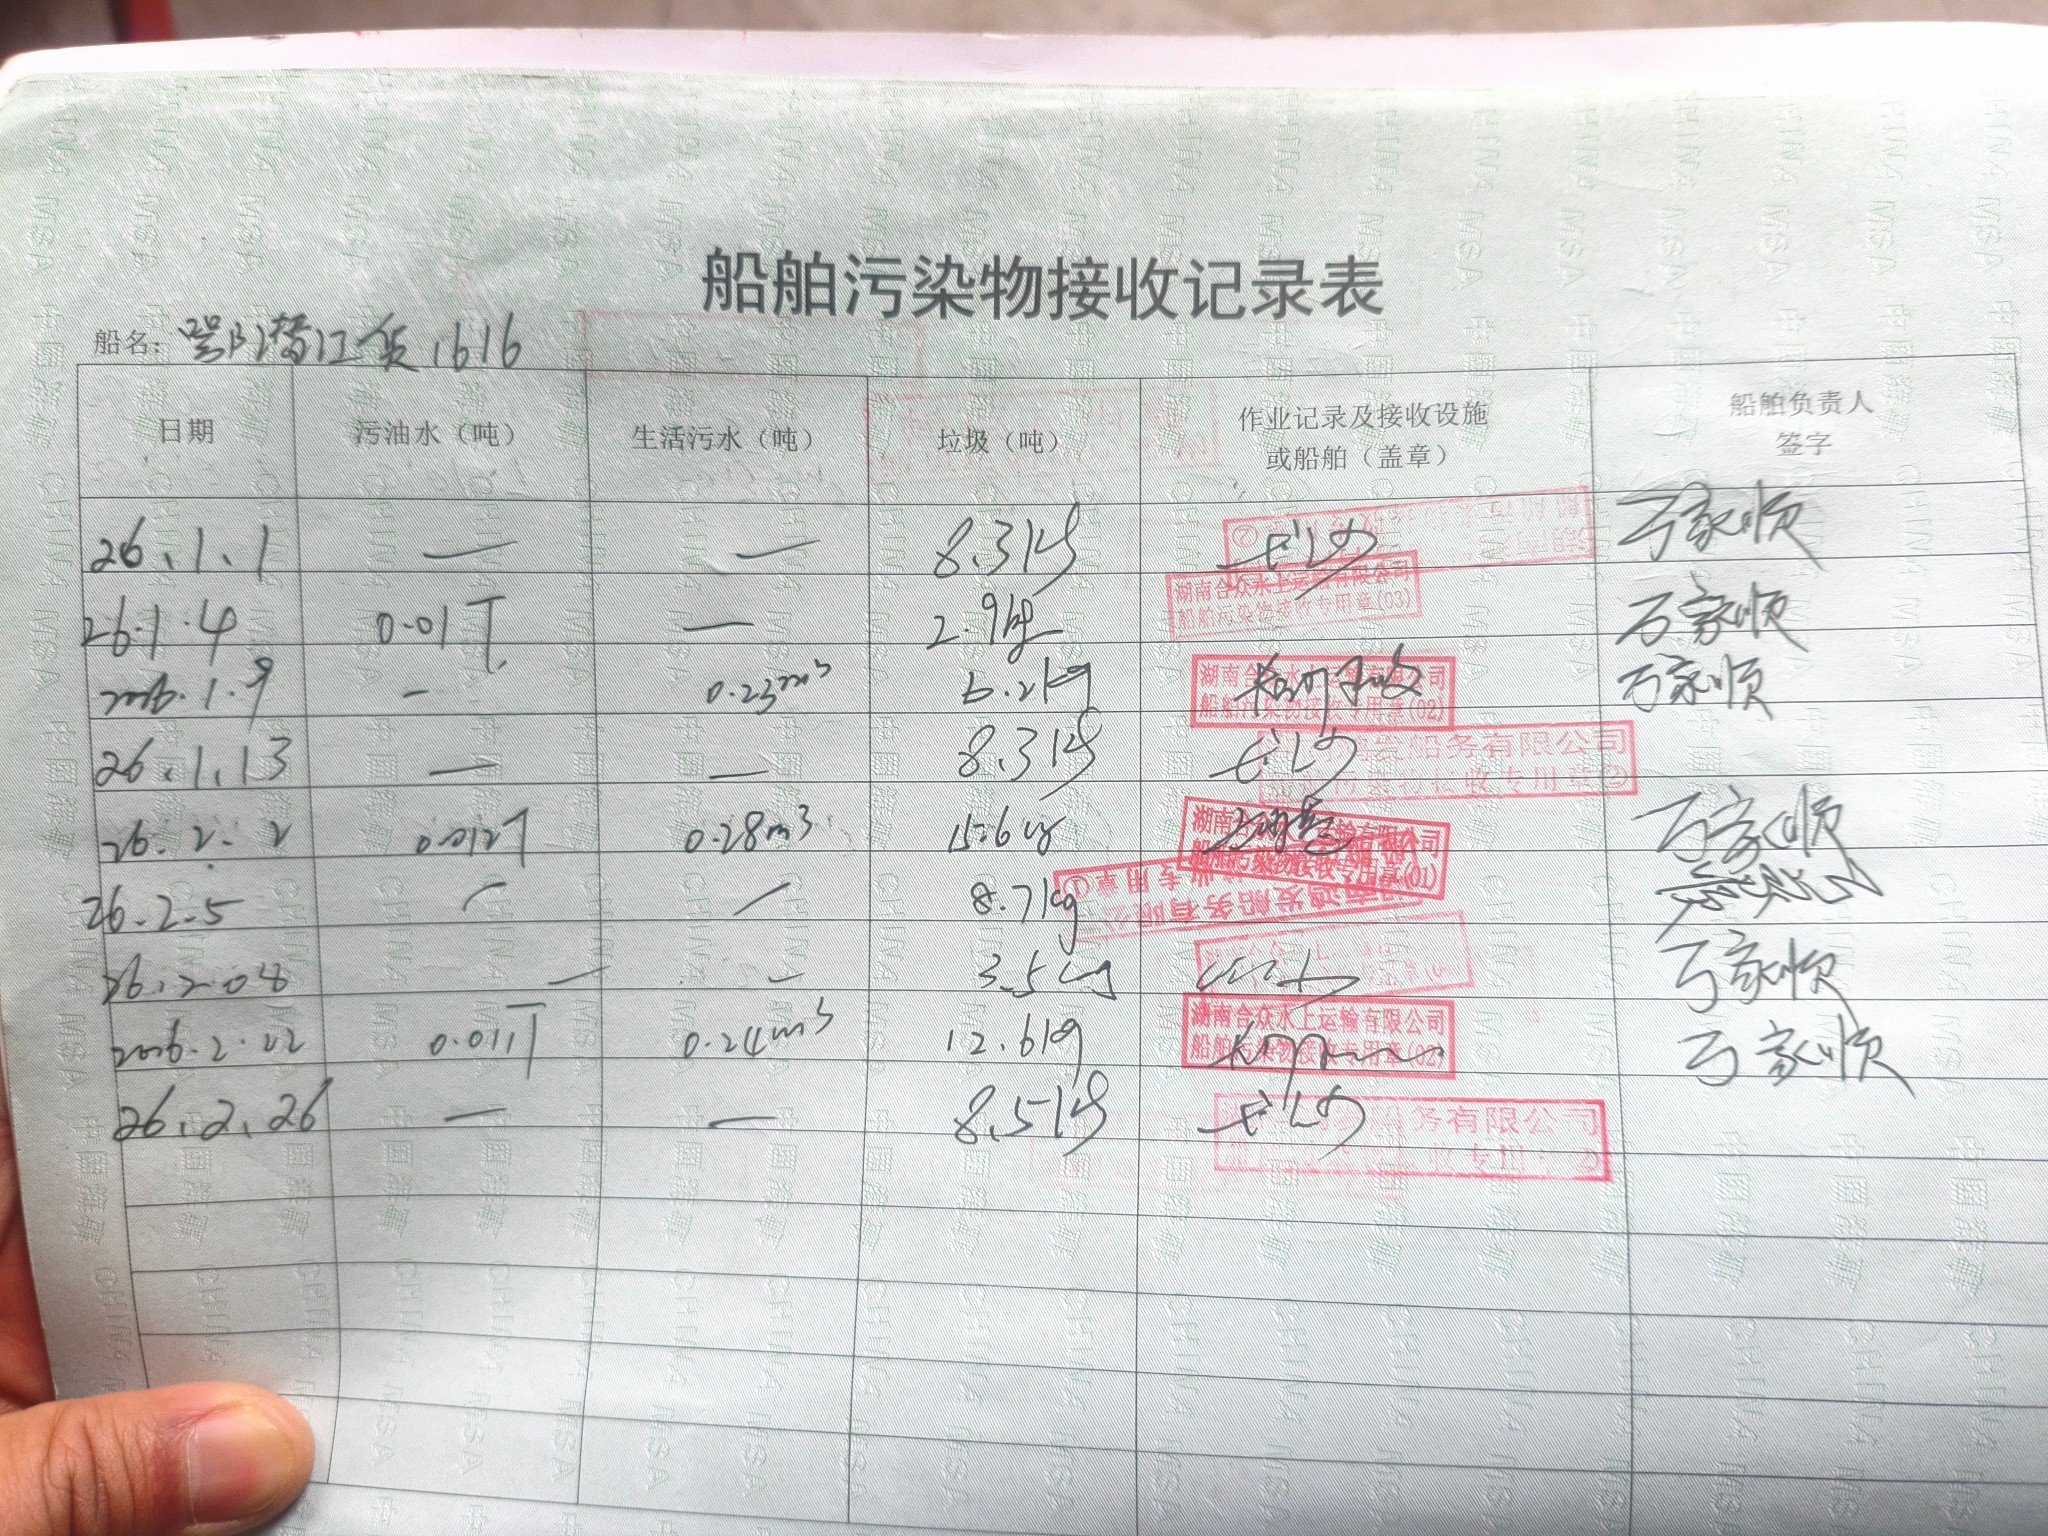 船舶污染物接收记录表
船名： 鄂潜江货1616
日期 污油水（吨） 生活污水（吨） 垃圾（吨） 作业记录及接收设施或船舶（盖章） 船舶负责人签字
26.1.1 — — 8.3kg 长沙 万家顺
26.1.4 0.01T — 2.9kg 湖南合众水上运输有限公司 船舶污染物接收专用章(03) 万家顺
2026.1.9 — 0.23m³ 6.2kg 湖南合众水上运输有限公司 船舶污染物接收专用章(02) 万家顺
26.1.13 — — 8.3kg 长沙 船务有限公司 接收专用章②
26.2.2 0.012T 0.28m³ 15.6kg 湖南合众水上运输有限公司 船舶污染物接收专用章(01) 万家顺
26.2.5 — — 8.7kg 船务有限公司 专用章①
26.2.08 — — 3.5kg 万家顺
2026.2.22 0.011T 0.24m³ 12.6kg 湖南合众水上运输有限公司 船舶污染物接收专用章(02) 万家顺
26.2.26 — — 8.5kg 长沙 船务有限公司 专用章②
中国海事 CHINA MSA